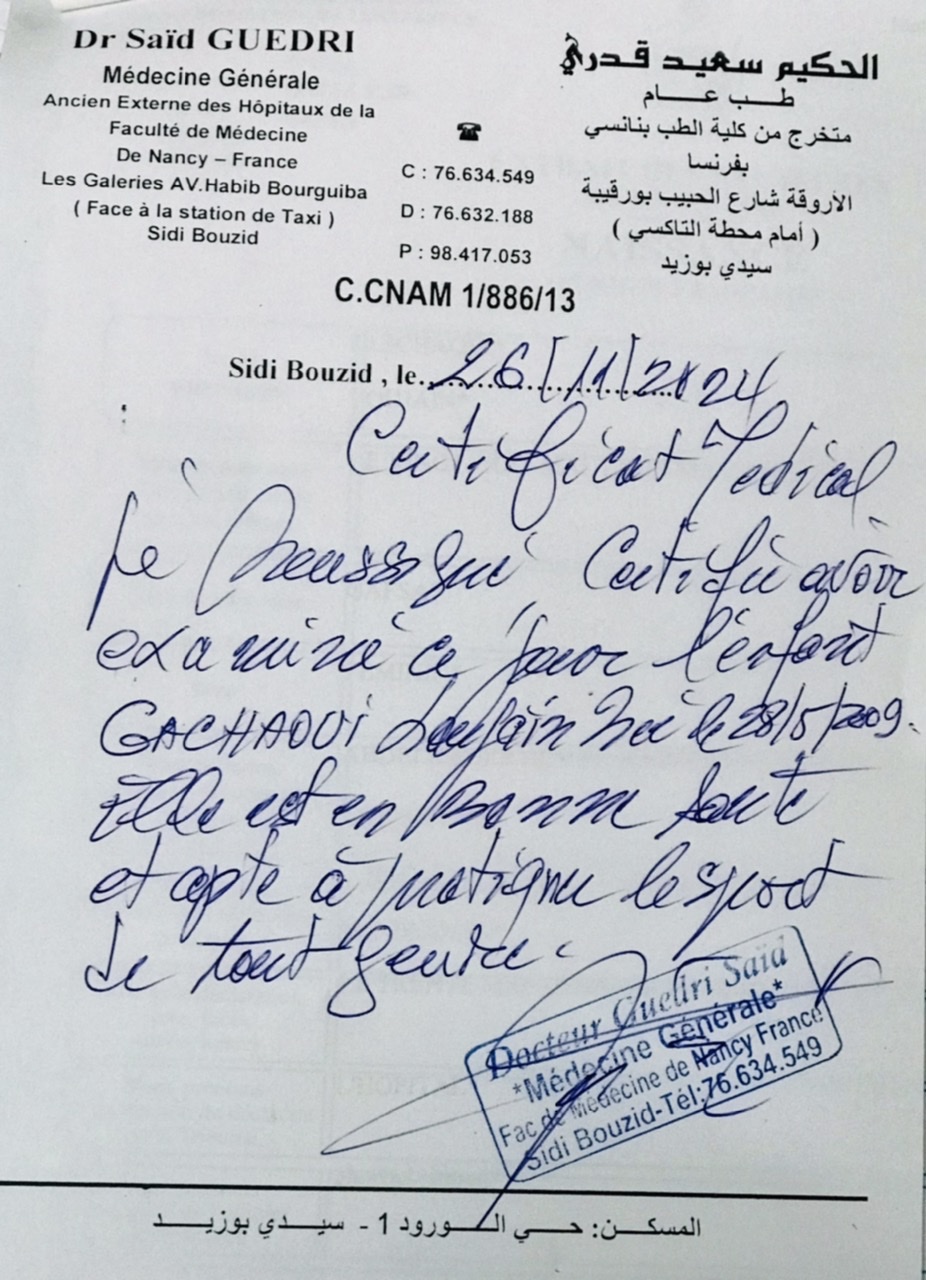 Dr Saïd GUEDRI
Médecine Générale
Ancien Externe des Hôpitaux de la
Faculté de Médecine
De Nancy – France
Les Galeries AV.Habib Bourguiba
( Face à la station de Taxi )
Sidi Bouzid
☎
C : 76.634.549
D : 76.632.188
P : 98.417.053
الحكيم سعيد قدري
طب عام
متخرج من كلية الطب بنانسي
بفرنسا
الأروقة شارع الحبيب بورقيبة
( أمام محطة التاكسي )
سيدي بوزيد
C.CNAM 1/886/13
Sidi Bouzid , le 26/11/2024
Certificat Medical
Je Soussigné Certifie avoir
examiné ce jour l'enfant
GACHAOUI Née le 28/5/2009.
Elle est en Bonne Santé
et apte à pratiquer le sport
de tout genre.
Docteur Guedri Saïd
*Médecine Générale*
Fac de Médecine de Nancy France
Sidi Bouzid-Tél:76.634.549
المسكن: حي الورود 1 - سيدي بوزيد